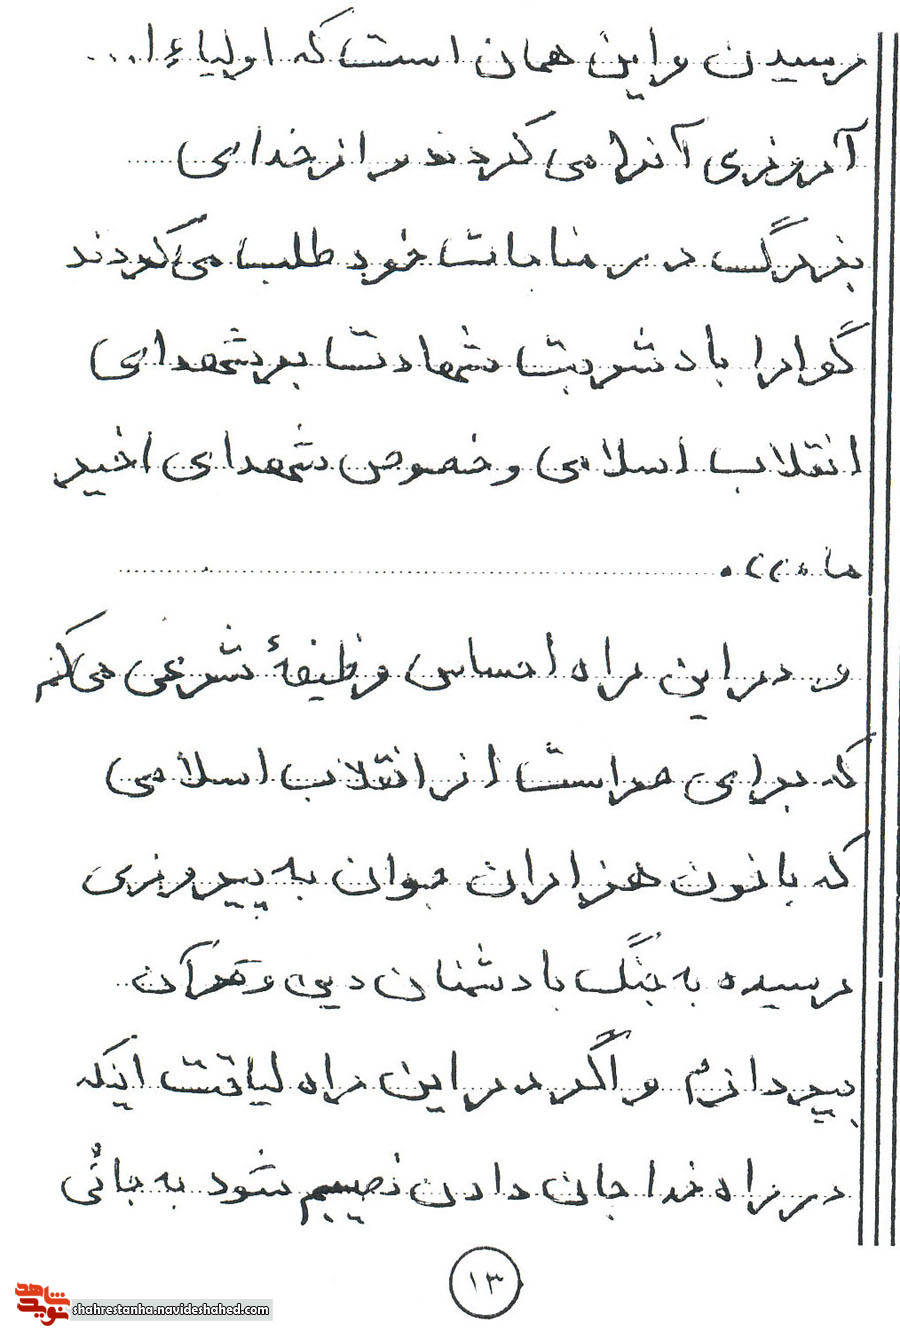 رسیدن و این همان است که اولیاء ا...
آرزوی آنرا می کردند و از خدای
بزرگ در مناجات خود طلب می کردند
گوارا باد شربت شهادت بر شهدای
انقلاب اسلامی و خصوص شهدای اخیر
ما،».
و در این راه احساس وظیفهٔ شرعی می کنم
که برای حراست از انقلاب اسلامی
که با خون هزاران جوان به پیروزی
رسیده به جنگ با دشمنان دین و قرآن
بپردازم و اگر در این راه لیاقت اینکه
در راه خدا جان دادن نصیبم شود به جائی
۱۳
شاهد
نوید
shahrestanha.navideshahed.com